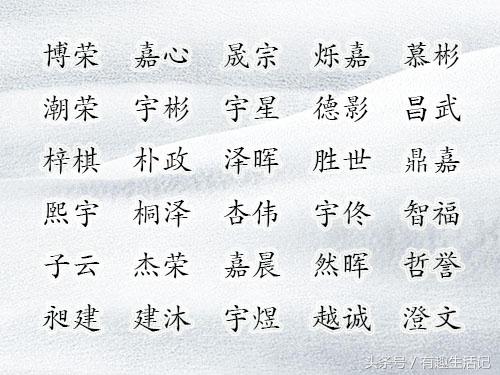 博荣 嘉心 晟宗 烁嘉 慕彬
潮荣 宇彬 宇星 德影 昌武
梓棋 朴政 泽晖 胜世 鼎嘉
熙宇 桐泽 杏伟 宇佟 智福
子云 杰荣 嘉晨 然晖 哲誉
昶建 建沐 宇煜 越诚 澄文
头条号 / 有趣生活记